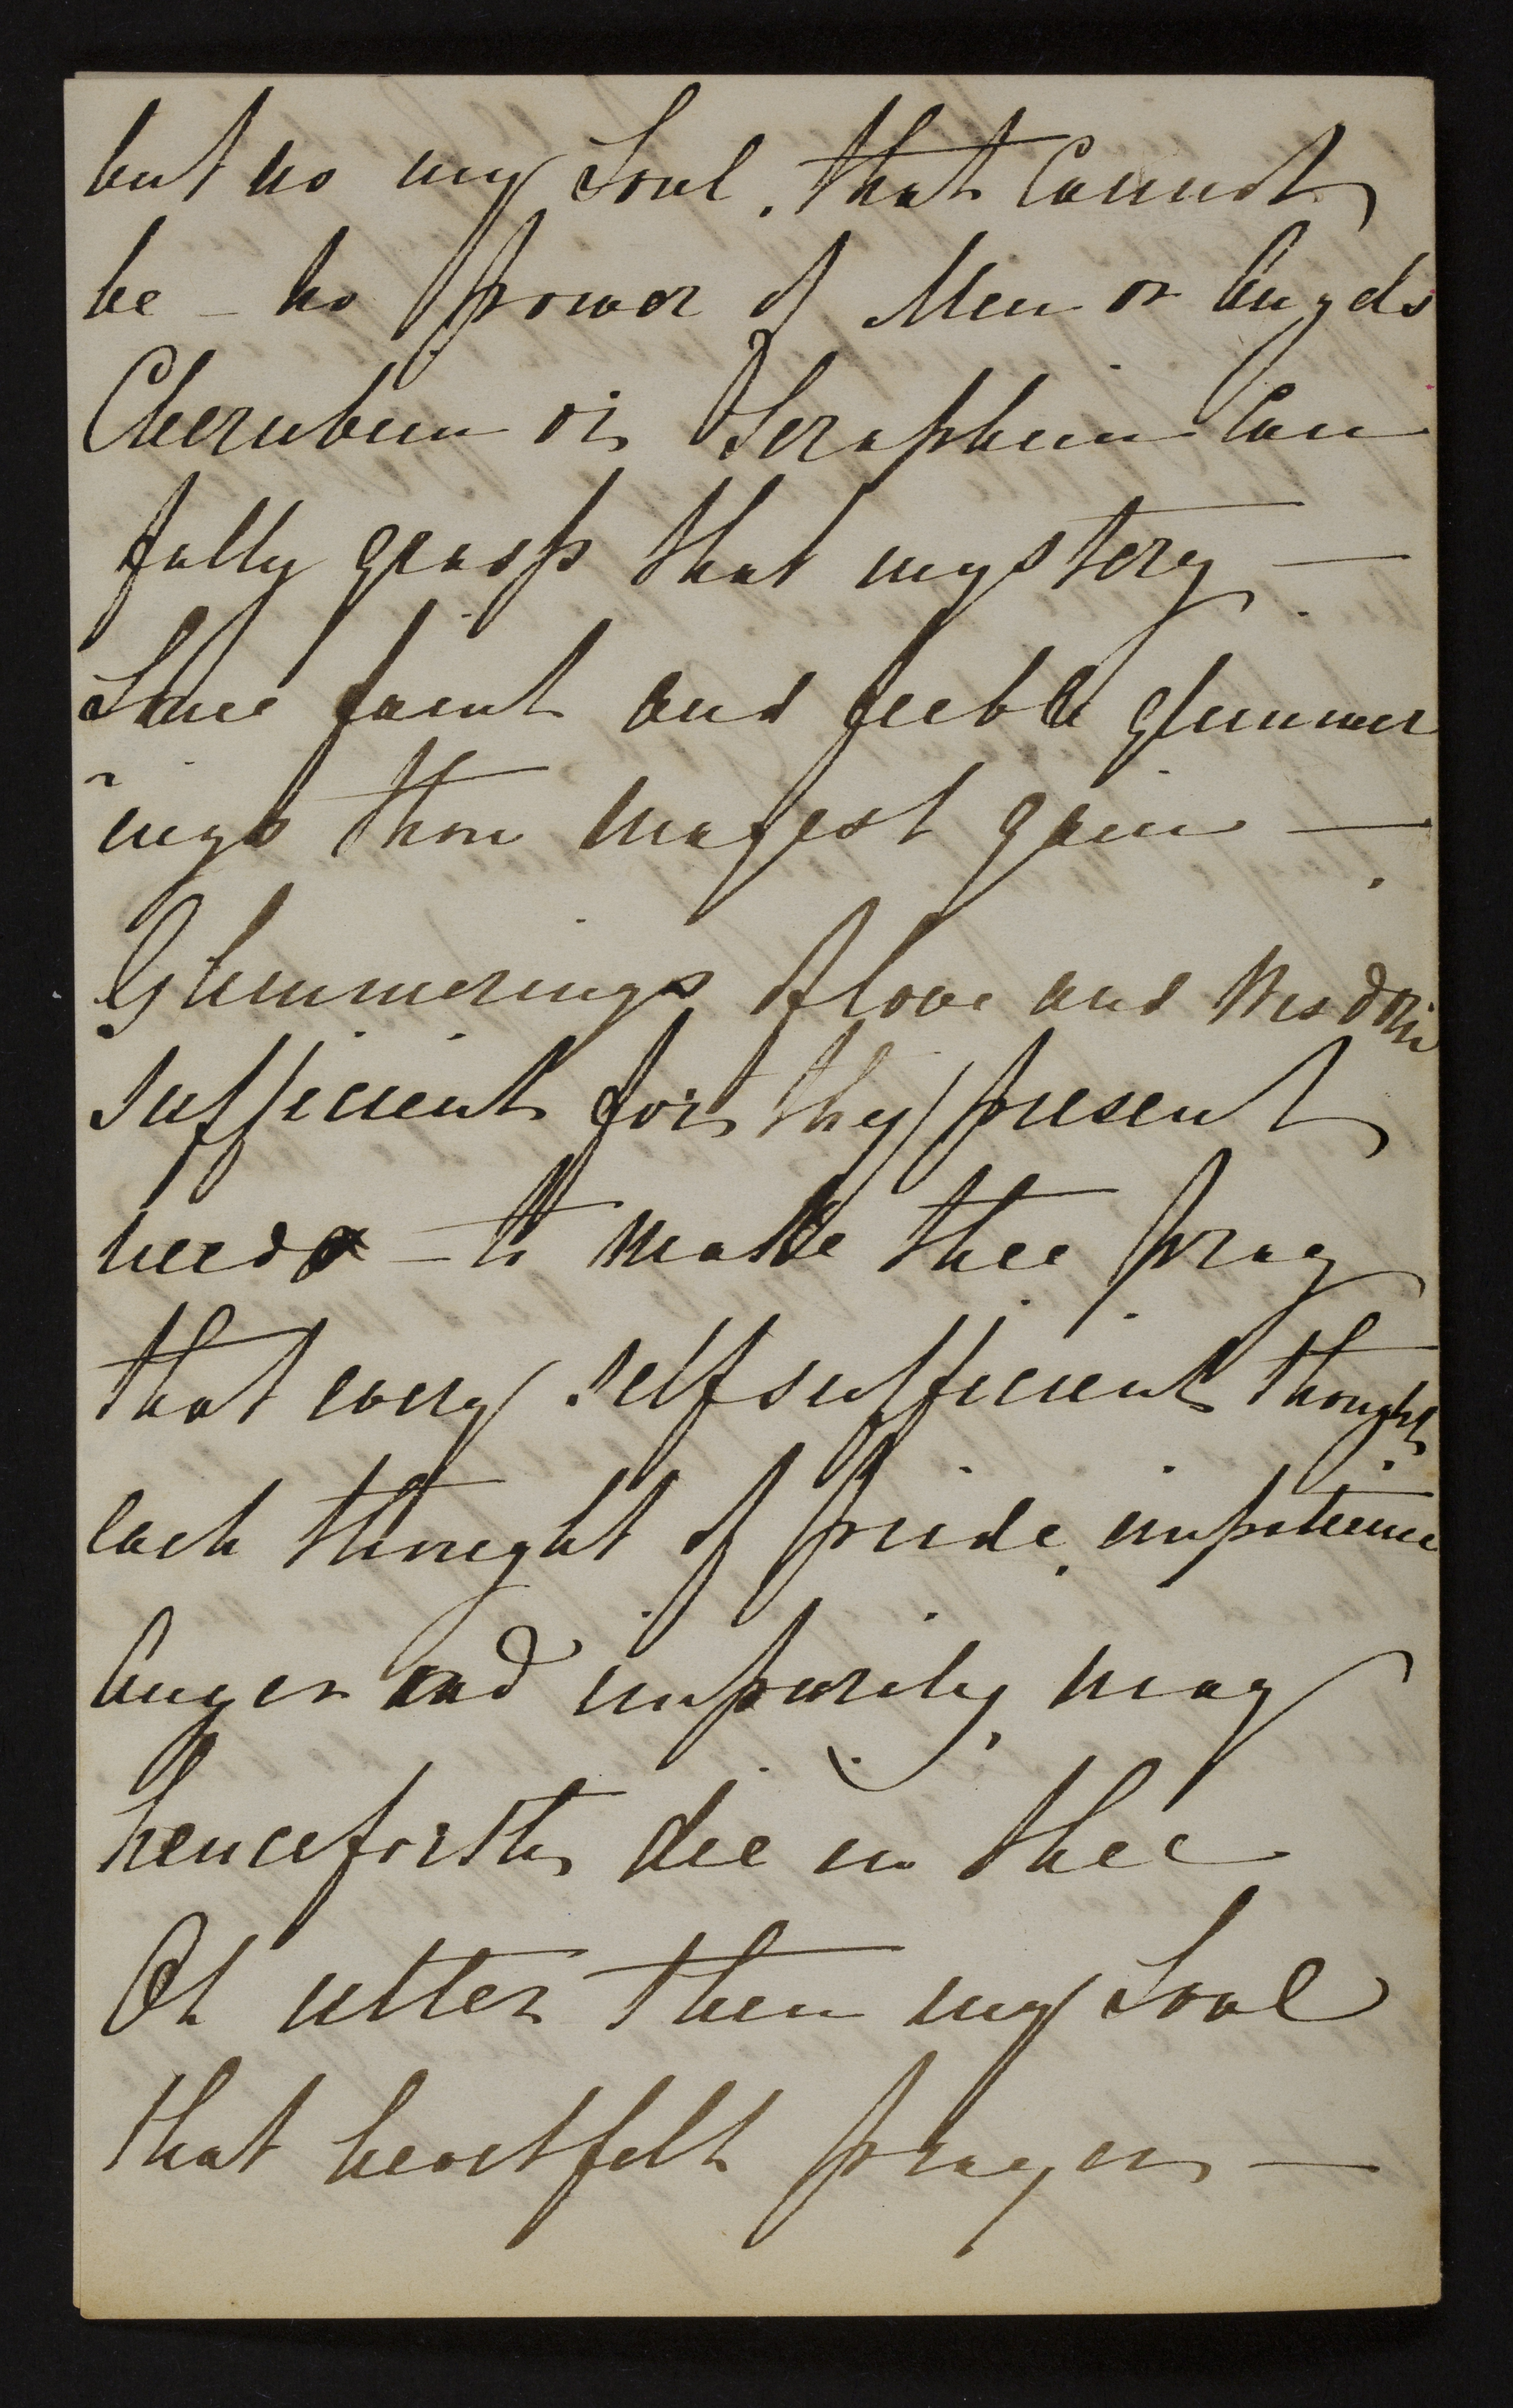 but no my Soul, that Cannot
be - no power of Men or Angels
Cherubim or Seraphim Can
fully grasp that mystery —
Some faint and feeble glimmer
-ings thou mayest gain —
Glimmerings of love and Wisdom
sufficient for thy present
needs - to make thee pray
that every selfsufficient thought
each thought of pride, impatience
Anger and impurity, may
henceforth die in thee
Oh utter then my Soul
that heartfelt prayer —